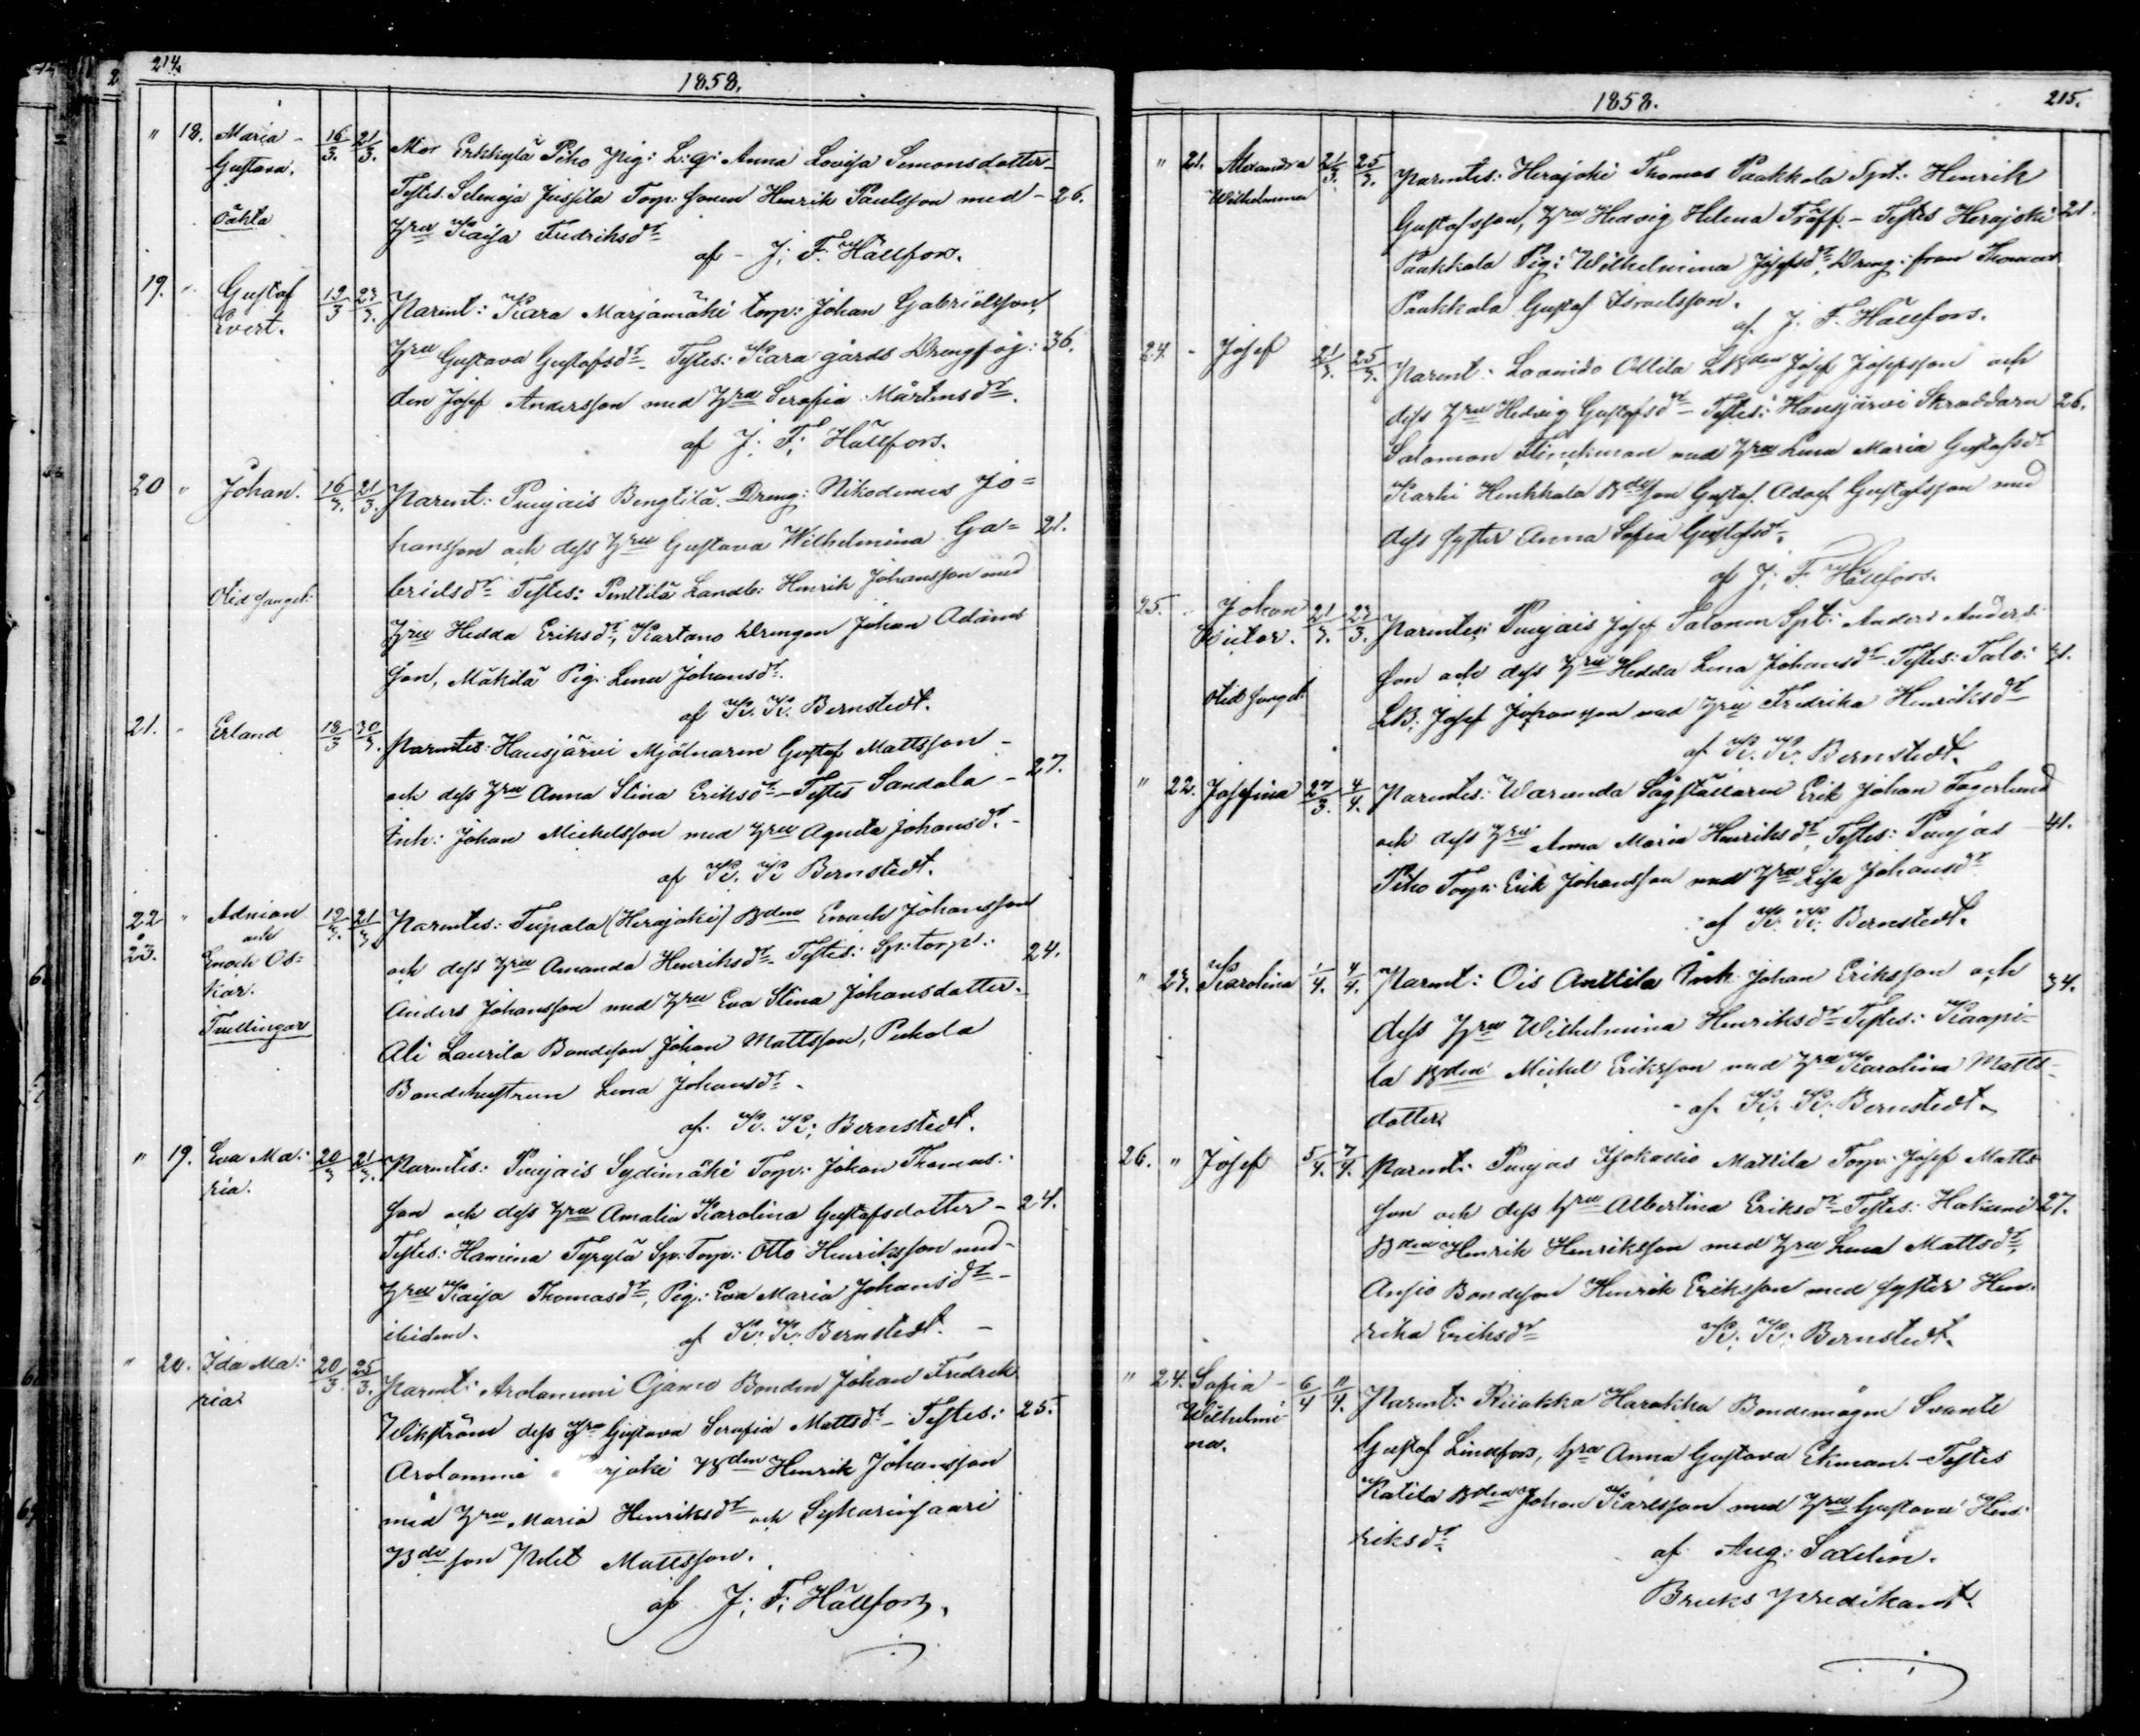 214.
1858.
" 18. Maria - 16/3. 21/3. Mor Erkkylä Piho Pig: L:q: Anna Lovisa Simonsdotter-
Gustava. Testes. Selenoja Jussila Torp: sonen Henrik Paulsson med - 26.
oäkta Hru Kaisa Fredriksdr
af - J; F. Hällfors.
19. " Gustaf 19/3 23/3. Parent: Kara Marjamäki torp: Johan Gabrielsson,
Evert. Hru Gustava Gustafsdr Testes: Kara gårds Drengfog: 36.
den Josef Andersson med Hru Serafia Mårtensdr.
af J; F; Hällfors.
20 " Johan. 16/3. 21/3. Parent: Punjais Bengtilä. Dreng: Nikodemus Jo=
hansson och dess Hru Gustava Wilhelmina Ga= 21.
brielsdr Testes: Penttilä Landb: Henrik Johansson med
Hru Hedda Eriksdr, Kartano Drengen Johan Adams
son, Mäkilä Pig: Lena Johansdr.
af K. K. Bernstedt.
21. " Erland 18/3 30/3. Parentes: Hausjärvi Mjölnaren Gustaf Mattsson -
och dess Hru Anna Stina Eriksdr - Testes Sandala - 27.
Inh: Johan Michelsson med Hru Agneta Johansdr. -
af K. K Bernstedt.
22 " Adrian 19/3. 21/3 Parentes: Tupala (Herajoki) Bden Enoch Johansson
o och
23. Enoch Os= och dess Hru Amanda Henriksdr. Testes: Sp: torp: 24.
kar. Anders Johansson med Hru Eva Stina Johansdotter.
Tvillingar Ali Laurila Bondeson Johan Mattsson, Pukala
Bondehustrun Lena Johansdr.
af. K. K; Bernstedt.
" 19. Eva Ma: 20/3 21/3. Parentes: Punjais Sydimäki Torp: Johan Thomas:
ria. son och dess Hru Amalia Karolina Gustafsdotter - 24.
Testes: Hamina Tyrylä Sp: Torp: Otto Henriksson med -
Hru Kaisa Thomasdr, Pig: Eva Maria Johansdr -
ibidem. af K: K: Bernstedt. -
" 20. Ida Ma: 20/3. 25/3. Parent: Arolammi Ojamo Bonden Johan Fredrik
ria. Wikström dess Hru Gustava Serafia Mattsdr - Testes: 25.
Arolammi Bden Henrik Johansson
med Hru Maria Henriksdr och Sykärinsaari
Bde son Mattsson.
af J; F; Hällfors.
1858. 215.
" 21. Alexandra 21/3. 25/3. Parentes: Herajoki Thomas Paakkola Spt: Henrik
Wilhelmina Gustafsson, Hru Hedvig Helena Träff. - Testes Herajoki 21.
Paakkala Pig: Wilhelmina Josefsdr, Dreng: från Thomas
Paakkala Gustaf Israelsson.
af. J. F. Hällfors.
24. - Josef 21/3. 25/3. Parent: Ollila LBden Josef Josefsson och
dess Hru Hedvig Gustafsdr - Testes: Hausjärvi Skräddarn 26.
Salomon Flinckman med Hru Lena Maria Gustafsdr
Karhi Henkkala Bdeson Gustaf Adolf Gustafsson med
dess syster Anna Sofia Gustafsdr.
af J; F. Hällfors.
25. " Johan 21/3. 23/3. Parentes: Punjais Josef Salomon Spt: Anders Anders:
Victor. son och dess Hru Hedda Lena Johansdr. Testes: Talo: 31.
LB: Josef Johansson med Hru Fredrika Henriksdr
af K. K. Bernstedt.
" 22. Josefina 27/3. 4/4. Parentes: Warunda Sågställaren Erik Johan Fagerlund
och dess Hru Anna Maria Henriksdr, Testes: Punjas - 41.
Piho Torp: Erik Johansson med Hru Lisa Johansdr
af K. K. Bernstedt.
" 23. Karolina 1/4. 4/4. Parent: Ois Anttila Inh. Johan Eriksson och 34.
dess Hru Wilhelmina Henriksdr Testes: Kaapi-
la Bden Michel Eriksson med Hru Karolina Matts-
dotter. - af. K. K. Bernstedt.
26. " Josef 5/4. 7/4. Parent: Punjas Isjokadio Mattila Torp: Josef Matts-
son och dess Hru Albertina Eriksdr - Testes: Hakuni 27.
Bden Henrik Henriksson med Hru Lena Mattsdr,
Ansio Bondeson Henrik Eriksson med syster Hen-
rika Eriksdr K; K; Bernstedt.
" 24. Sofia - 6/4 11/4. Parent: Harakka Bondemågen Svante
Wilhelmi- Gustaf Lindfors, Hru Anna Gustava Ekman. - Testes
na. Katila Bden Johan Karlsson med Hru Gustava Hen:
riksdr.
af Aug: Saxelin.
Bruks predikant.